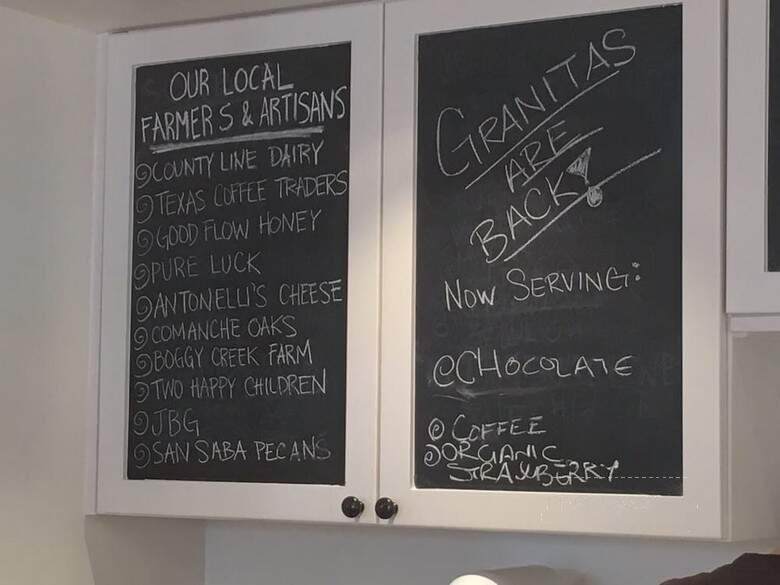 OUR LOCAL
FARMERS & ARTISANS
COUNTY LINE DAIRY
TEXAS COFFEE TRADERS
GOOD FLOW HONEY
PURE LUCK
ANTONELLI'S CHEESE
COMANCHE OAKS
BOGGY CREEK FARM
TWO HAPPY CHILDREN
JBG
SAN SABA PECANS
GRANITAS
ARE
BACK!
NOW SERVING:
CHOCOLATE
COFFEE
ORGANIC
STRAWBERRY